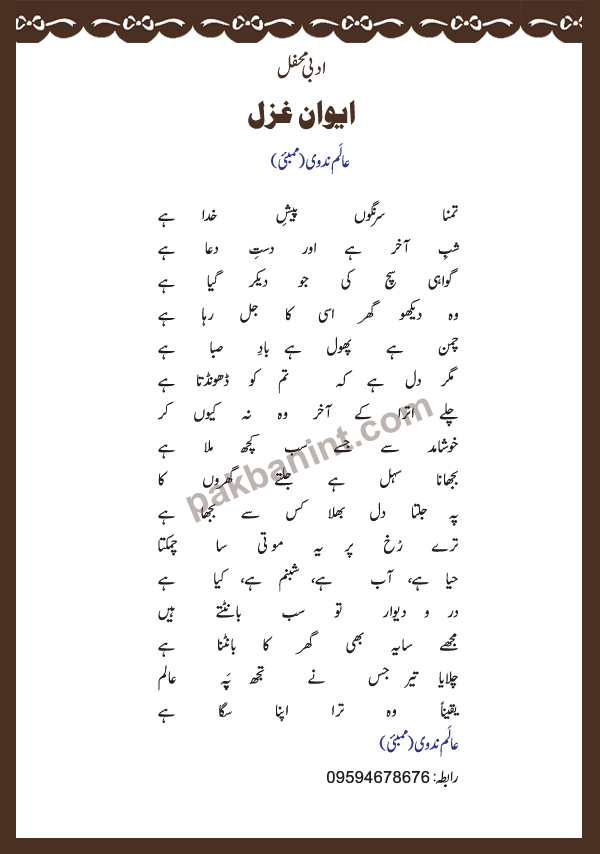 ادبی محفل
ایوان غزل
عالَم ندوی (ممبئی)
تمنا سرنگوں پیشِ خدا ہے
شبِ آخر ہے اور دستِ دعا ہے
گواہی سچ کی جو دیکر گیا ہے
وہ دیکھو گھر اسی کا جل رہا ہے
چمن ہے پھول ہے بادِ صبا ہے
مگر دل ہے کہ تم کو ڈھونڈتا ہے
چلے اترا کے آخر وہ نہ کیوں کر
خوشامد سے جسے سب کچھ ملا ہے
بجھانا سہل ہے جلتے گھروں کا
پہ جلتا دل بھلا کس سے بجھا ہے
ترے رُخ پر یہ موتی سا چمکتا
حیا ہے، آب ہے، شبنم ہے، کیا ہے
در و دیوار تو سب بانٹتے ہیں
مجھے سایہ بھی گھر کا بانٹنا ہے
چلایا تیر جس نے تجھ پَہ عالم
یقیناً وہ ترا اپنا سگا ہے
عالَم ندوی (ممبئی)
رابطہ: 09594678676
pakbanint.com